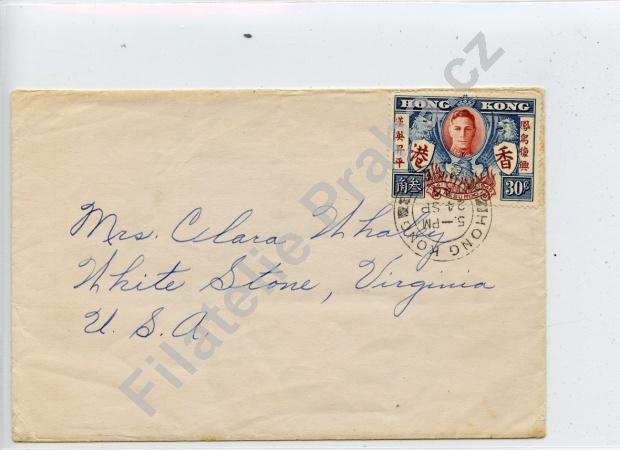 HONG KONG
鳳鳥復興
漢英昇平
香港
角叁
30¢
HONG KONG
5.—PM
24 SP
Mrs. Clara Whaley
White Stone, Virginia
U. S. A.
Filatelie Praha.cz